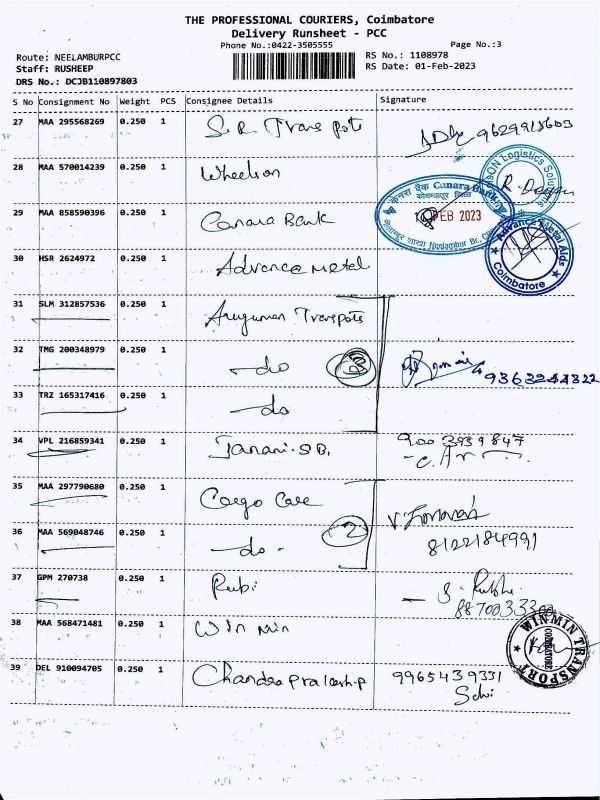 THE PROFESSIONAL COURIERS, Coimbatore
Delivery Runsheet - PCC
Phone No.:0422-3505555
Page No.:3
Route: NEELAMBURPCC
RS No.: 1108978
Staff: RUSHEEP
RS Date: 01-Feb-2023
DRS No.: DCJB110897803
S No Consignment No Weight PCS Consignee Details Signature
27 MAA 295568269 0.250 1 S.R Transpots 9629918603
28 MAA 570014239 0.250 1 Wheelson
SON Logistics Solutions
29 MAA 858590396 0.250 1 Canara Bank
केनरा बैंक Canara Bank
FEB 2023
Neelambur Br.
30 HSR 2624972 0.250 1 Advance Metal
Advance Metal Aids
Coimbatore
31 SLM 312857536 0.250 1 Arugunan Transpots
32 TMG 200348979 0.250 1 -do 3 9363244322
33 TRZ 165317416 0.250 1 -do
34 VPL 216859341 0.250 1 Janani.SB. 900 3939847
35 MAA 297790680 0.250 1 Cargo Care
36 MAA 569048746 0.250 1 -do- 2 8122184991
37 GPM 270738 0.250 1 Rubi
38 MAA 568471481 0.250 1 Win Min
WINMIN TRANSPORT
COIMBATORE
39 DEL 910094705 0.250 1 Chandraprakash.p 9965439331
Selvi